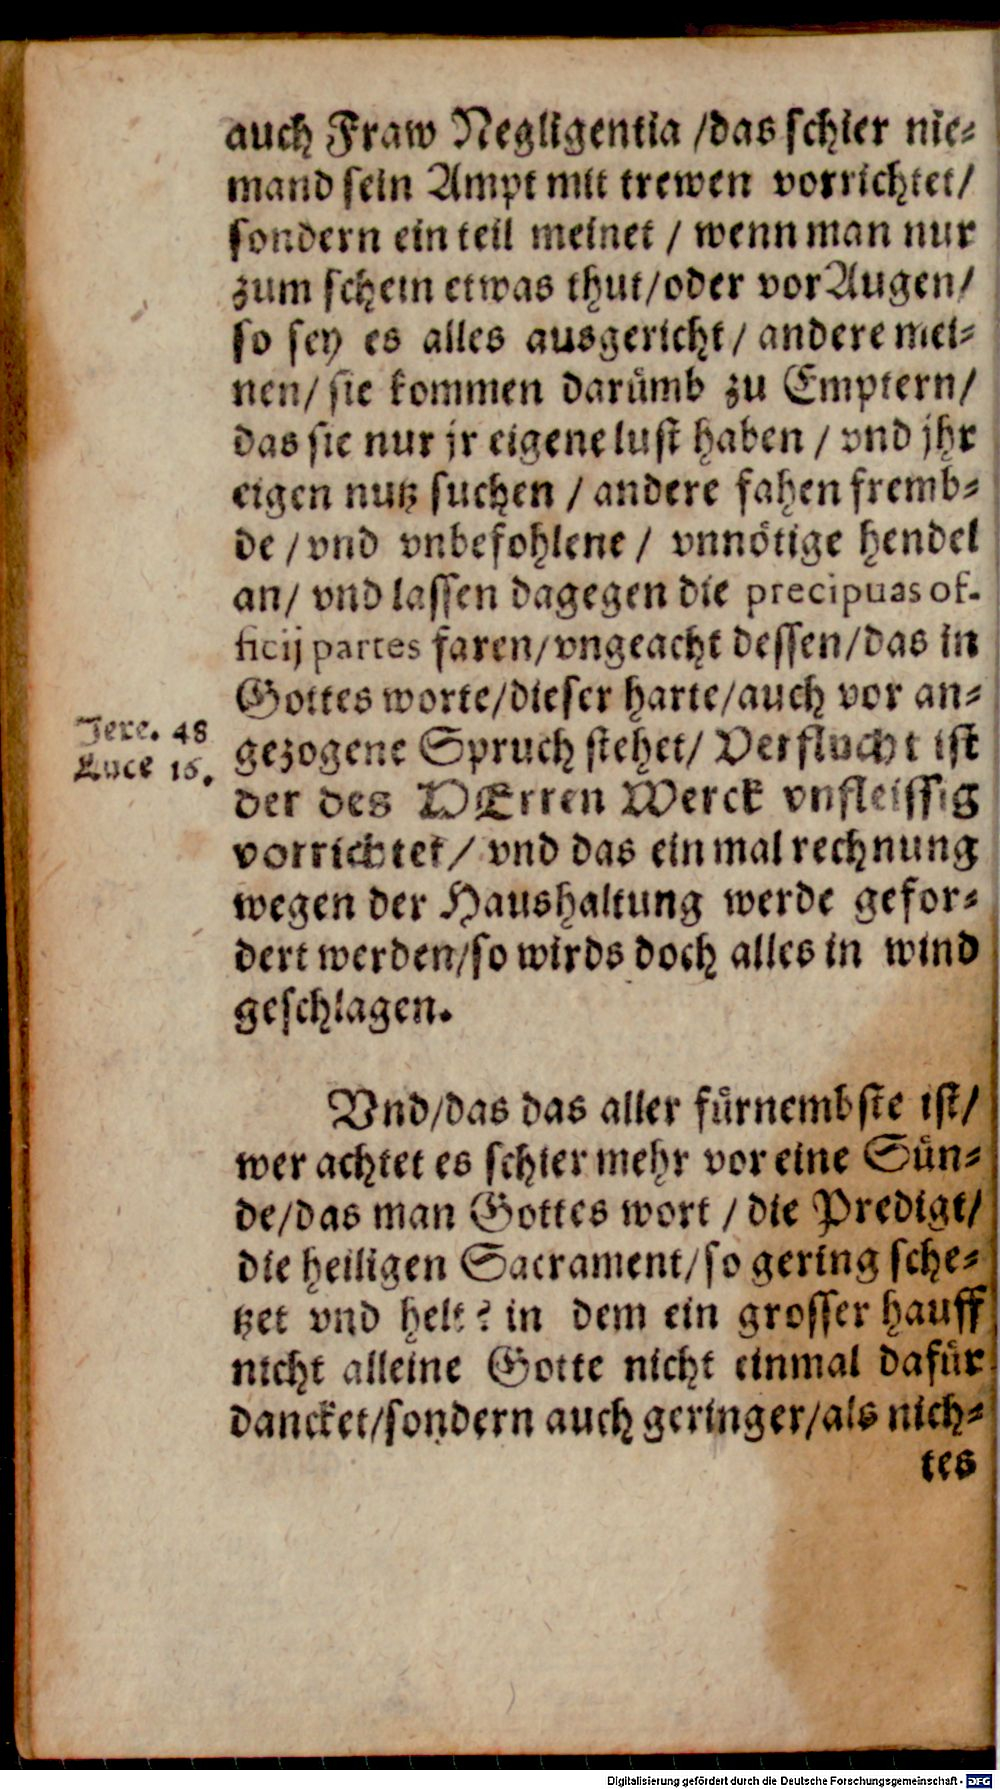 auch Fraw Negligentia /das schier nie⸗
mand sein Ampt mit trewen vorrichtet/
sondern ein teil meinet / wenn man nur
zum schein etwas thut/oder vor Augen/
so sey es alles ausgericht / andere mei⸗
nen/ sie kommen darümb zu Emptern/
das sie nur jr eigene lust haben / vnd jhr
eigen nutz suchen / andere fahen fremb⸗
de / vnd vnbefohlene / vnnötige hendel
an/ vnd lassen dagegen die precipuas of-
ficij partes faren/vngeacht dessen/das in
Gottes worte/dieser harte/auch vor an⸗
Jere. 48
gezogene Spruch stehet/ Verflucht ist
Luce 16.
der des HErren Werck vnfleissig
vorrichtet/ vnd das ein mal rechnung
wegen der Haushaltung werde gefor⸗
dert werden/so wirds doch alles in wind
geschlagen.
Vnd/das das aller fürnembste ist/
wer achtet es schier mehr vor eine Sün⸗
de/das man Gottes wort / die Predigt/
die heiligen Sacrament/so gering sche⸗
tzet vnd helt? in dem ein grosser hauff
nicht alleine Gotte nicht einmal dafür
dancket/sondern auch geringer/als nich⸗
tes
Digitalisierung gefördert durch die Deutsche Forschungsgemeinschaft - DFG